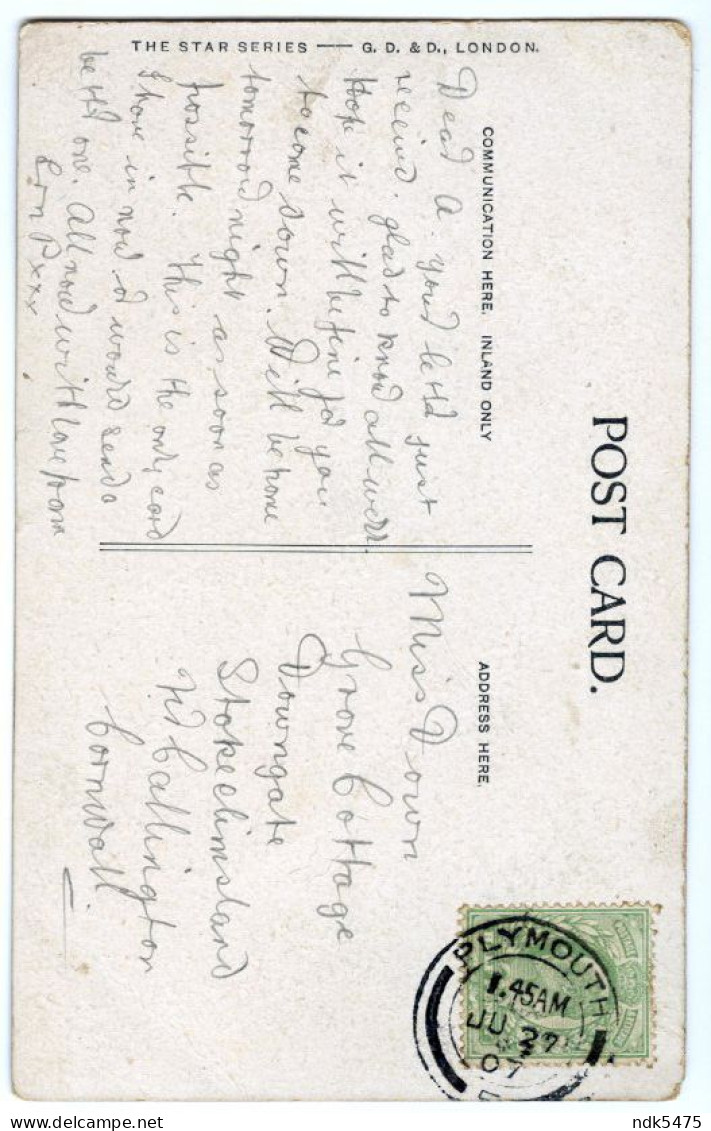 THE STAR SERIES — G. D. & D., LONDON.
POST CARD.
COMMUNICATION HERE. INLAND ONLY
ADDRESS HERE.
Dear A. your letter just
received. glad to know all well.
Hope it will be fine for you
to come down. Will be home
tomorrow night as soon as
possible. This is the only card
I have in now or would send a
better one. All now with love from
Ern P xxx
Miss Down
Grove Cottage
Downgate
Stokeclimsland
Nr Callington
Cornwall
PLYMOUTH
1.45AM
JU 27
07
ndk5475